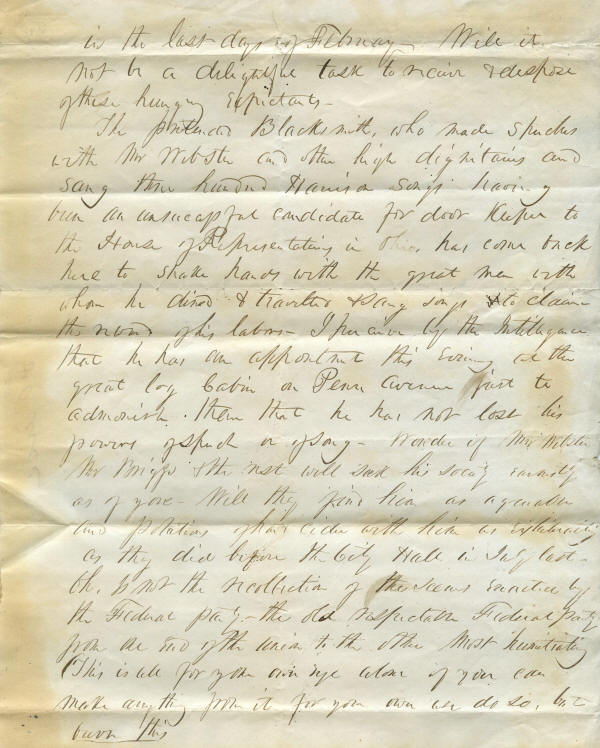 in the last days of February - Will it
not be a delightful task to receive & dispose
of these hungry Expectants -
The Blacksmith, who made speeches
with Mr Webster and other high dignitaries and
sang three hundred Harrison songs having
been an unsuccessful candidate for door Keeper to
the House of Representatives in Ohio, has come back
here to shake hands with the great men with
whom he dined & traveled & sang songs & to claim
the reward of his labors - I perceive by the Intelligencer
that he has an appointment this Evening at the
great log Cabin on Penn Avenue just to
admonish them that he has not lost his
powers of speech or of song - Wonder if Mr Webster
Mr Briggs & the rest will seek his society
as of yore - Will they find him as agreeable
and potations of hard cider with him as exhilarating
as they did before the City Hall in July last -
Oh, Is not the recollection of the scenes Enacted by
the Federal party - the old respectable Federal party
from one End of the union to the other Most humiliating
This is all for your own eye alone if you can
make anything from it for your own use do so, but
burn this